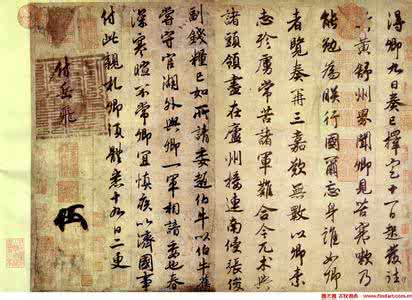 得卿九日奏已擇定十一日起發往
蘄黃舒州界聞卿見苦寒嗽乃
能勉為朕行國爾忘身誰如卿
者覽奏再三嘉歎無斁以卿素
志殄虜常苦諸軍難合今兀朮與
諸頭領盡在廬州接連南侵張俊
副錢糧已如所請委趙伯牛以伯牛舊
嘗守官湖外與卿一軍相諳委也春
深寒暄不常卿宜慎疾以濟國事
付此親札卿須體悉十九日二更
付岳飛
www.findart.com.cn